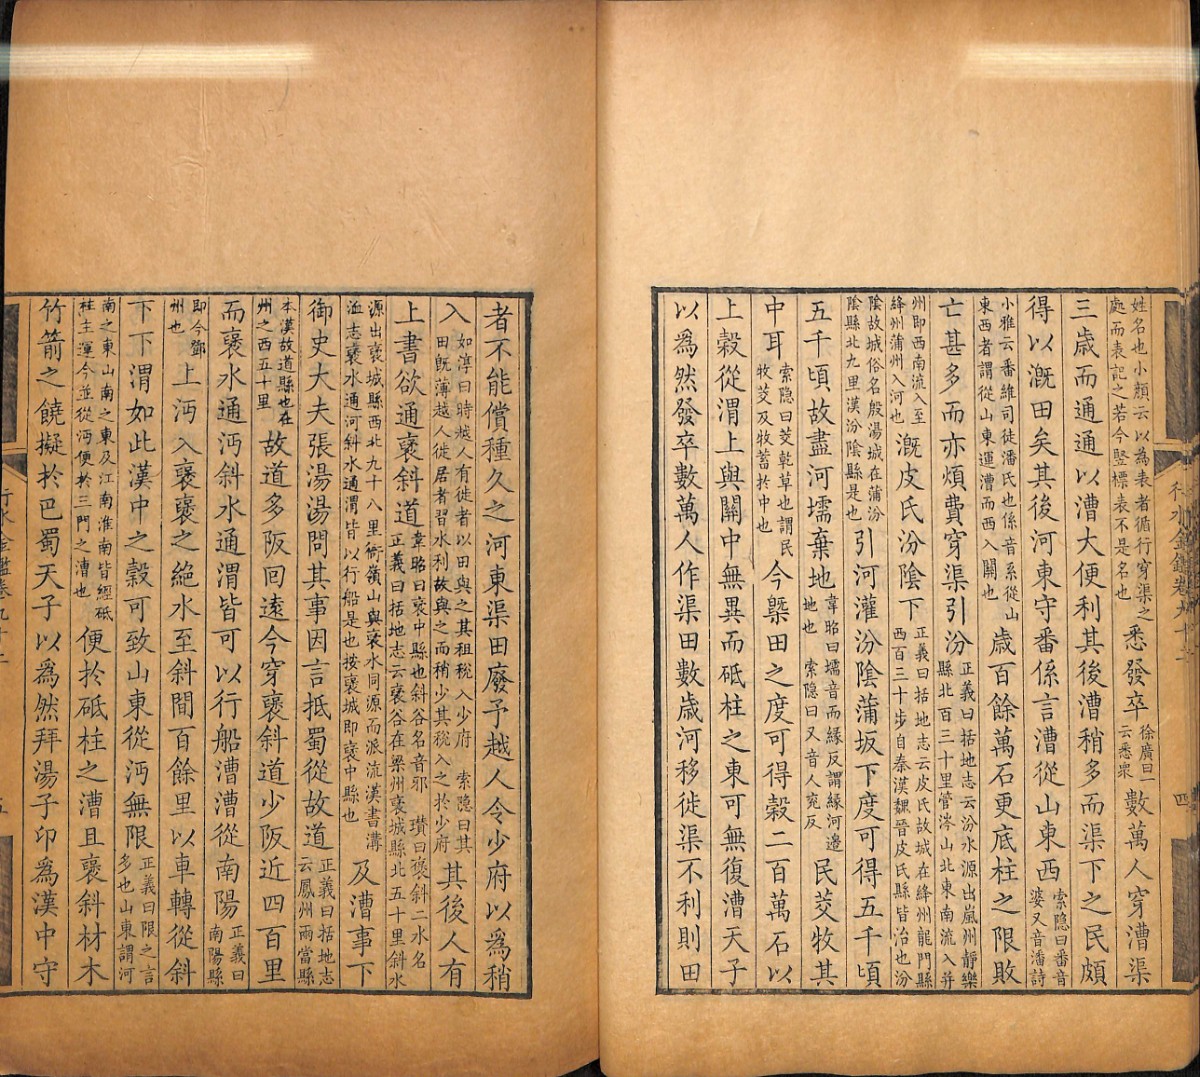 姓名也小顏云以為表者循行穿渠之處而表記之若今豎標表不是名也悉發卒徐廣曰一云悉衆數萬人穿漕渠
三歲而通通以漕大便利其後漕稍多而渠下之民頗
得以溉田矣其後河東守番係言漕從山東西索隱曰番音婆又音潘詩
小雅云番維司徒潘氏也係音系從山東西者謂從山東運漕而西入關也歲百餘萬石更底柱之限敗
亡甚多而亦煩費穿渠引汾正義曰括地志云汾水源出嵐州靜樂縣北百三十里管涔山北東南流入并
州即西南流入至絳州蒲州入河也溉皮氏汾陰下正義曰括地志云皮氏故城在絳州龍門縣西百三十步自秦漢魏晉皮氏縣皆治也汾
陰故城俗名殷湯城在蒲汾陰縣北九里漢汾陰縣是也引河灌汾陰蒲坂下度可得五千頃
五千頃故盡河壖棄地韋昭曰壖音而緣反謂緣河邊地也 索隱曰又音人兖反民茭牧其
中耳索隱曰茭乾草也謂民牧茭及牧蓄於中也今漑田之度可得穀二百萬石以
上穀從渭上與關中無異而砥柱之東可無復漕天子
以為然發卒數萬人作渠田數歲河移徙渠不利則田
行水金鑑卷九十二
四
者不能償種久之河東渠田廢予越人令少府以為稍
入如淳曰時越人有徙者以田與之其租稅入少府 索隱曰其田旣薄越人徙居者習水利故與之而稍少其稅入之於少府其後人有
上書欲通褒斜道韋昭曰褒中縣也斜谷名音邪 瓚曰褒斜二水名 正義曰括地志云褒谷在梁州褒城縣北五十里斜水
源出褒城縣西北九十八里衙嶺山與褒水同源而派流漢書溝洫志褒水通沔斜水通渭皆以行船是也按褒城即褒中縣也及漕事下
御史大夫張湯湯問其事因言抵蜀從故道正義曰括地志云鳳州兩當縣
本漢故道縣也在州之西五十里故道多阪回遠今穿褒斜道少阪近四百里
而褒水通沔斜水通渭皆可以行船漕漕從南陽正義曰南陽縣
即今鄧州也上沔入褒褒之絶水至斜間百餘里以車轉從斜
下下渭如此漢中之穀可致山東從沔無限正義曰限之言多也山東謂河
南之東山南之東及江南淮南皆經砥柱主運今並從沔便於三門之漕也便於砥柱之漕且褒斜材木
竹箭之饒擬於巴蜀天子以為然拜湯子卬為漢中守
行水金鑑卷九十二
五